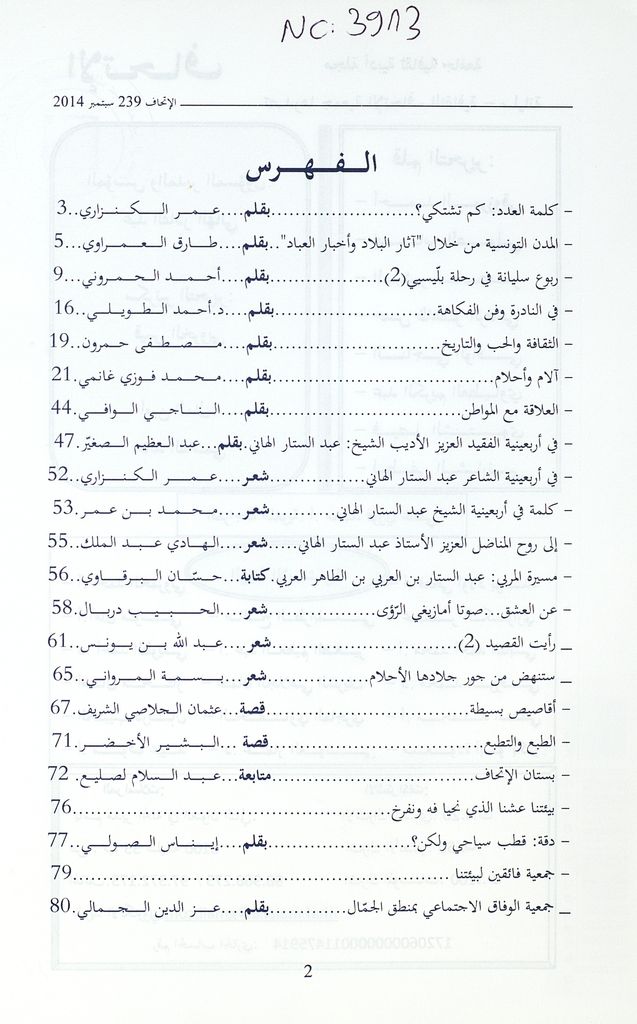 NC: 3913
الإتحاف 239 سبتمبر 2014
الـفـهـرس
- كلمة العدد: كم تشتكي؟......................بقلم....عمر الـكـنـزاري..3
- المدن التونسية من خلال "آثار البلاد وأخبار العباد"..بقلم...طـارق الـعـمـراوي..5
- ربوع سليانة في رحلة بلّيسيي(2).....................بقلم....أحـمـد الـحـمـروني..9
- في النادرة وفن الفكاهة.........................بقلم....د.أحمد الـطـويـلـي..16
- الثقافة والحب والتاريخ.........................بقلم....مـصـطـفـى حـمـرون..19
- آلام وأحلام.........................بقلم....مـحـمـد فـوزي غانمي..21
- العلاقة مع المواطن.........................بقلم....الـنـاجـي الـوافـي..44
- في أربعينية الفقيد العزيز الأديب الشيخ: عبد الستار الهاني.بقلم...عبد العظيم الـصغيّر.47
- في أربعينية الشاعر عبد الستار الهاني................شعر....عـمـر الـكـنـزاري..52
- كلمة في أربعينية الشيخ عبد الستار الهاني..........شعر....مـحـمـد بـن عـمـر.53
- إلى روح المناضل العزيز الأستاذ عبد الستار الهاني.....شعر....الـهـادي عـبـد الملك..55
- مسيرة المربي: عبد الستار بن العربي بن الطاهر العربي.كتابة...حـسّـان الـبـرقـاوي..56
- عن العشق...صوتا أمازيغي الرّؤى...............شعر....الـحـبـيـب دربـال..58
_ رأيت القصيد (2).........................شعر....عـبـد الله بـن يـونـس..61
_ ستنهض من جور جلادها الأحلام..............شعر....بـسـمـة الـمـرواني..65
- أقاصيص بسيطة.........................قصة...عثمان الجلاصي الشريف.67
- الطبع والتطبع.........................قصة ...الـبـشـير الأخـضـر..71
- بستان الإتحاف.........................متابعة...عـبـد الـسـلام لصليع. 72
- بيئتنا عشنا الذي نحيا فه ونفرخ.........................76
- دقة: قطب سياحي ولكن؟......................بقلم....إيـنـاس الـصـولـي..77
- جمعية فائقين لبيئتنا .........................79
_ جمعية الوفاق الاجتماعي بمنطق الجمّال............بقلم....عـز الدين الـجـمـالي.80
2